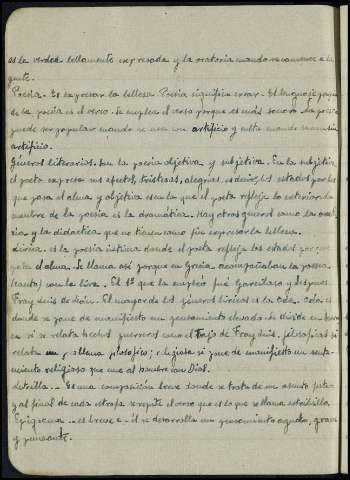 es la verdad bellamente expresada y la oratoria cuando se convence a la
gente.
Poesía.- Es expresar la belleza. Poesía significa crear. El lenguaje propio
de la poesía es el verso. Se emplea el verso porque es más sonoro. La poesía
puede ser popular cuando se usa con artificio y culta cuando se usa sin
artificio.
Géneros literarios. Son la poesía objetiva y subjetiva. En la subjetiva
el poeta expresa sus afectos, tristezas, alegrías, es decir, los estados por los
que pasa el alma y objetiva es en la que el poeta refleja lo exterior. La
nombre de la poesía es la dramática. Hay otros géneros como la orato
ria y la didáctica que no tienen como fin expresar la belleza.
Lírica. es la poesía íntima donde el poeta refleja los estados porque
pasa el alma. Se llama así porque en Grecia acompañaban la poesía
(canto) con la lira. El 1º que la empleó fué Garcilaso y después
Fray Luis de León. El mayor de los géneros líricos es la Oda. Oda es
donde se pone de manifiesto un pensamiento elevado. Se divide en
si se relata hechos guerreros como el Tajo de Fray Luis, filosóficas si
relata un se llama filosófico; religiosa si pone de manifiesto un senti-
miento religioso que une al hombre con Dios.
Letrilla.- Es una composición breve donde se trata de un asunto
y al final de cada estrofa se repite el verso que es lo que se llama estribillo
Epigrama.- es breve y en él se desarrolla un pensamiento agudo, grave
y punzante.